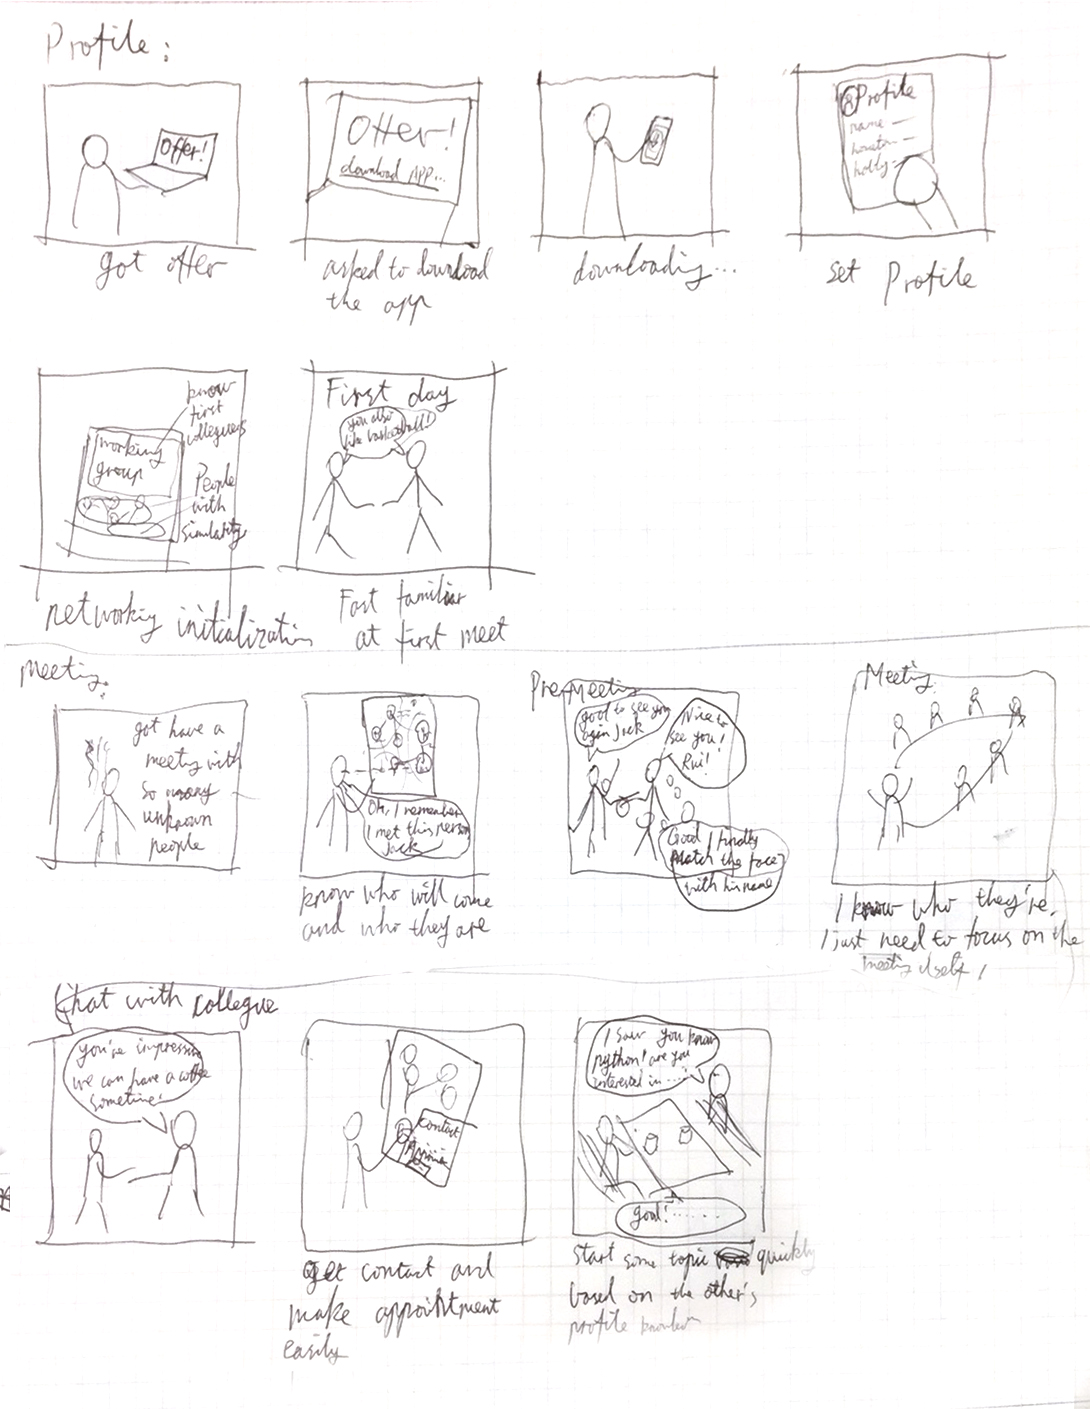 Profile:
Offer!
got offer
Offer!
download APP...
asked to download
the app
downloading...
Profile
name
hobby
set Profile
working
group
know
first
collegues
People
with
similarity
networking initialization
First day
you also
like basketball!
Fast familiar
at first meet
Meeting:
got have a
meeting with
so many
unknown
people
Oh, I remember
I met this person
Jack
know who will come
and who they are
Pre-Meeting
good to see you
again Jack
Nice to
see you!
Rui!
Good I finally
match the face
with his name
Meeting
I know who they're,
I just need to focus on the
meeting itself!
Chat with collegue
you're impressive
we can have a coffee
sometime!
Contact
get contact and
make appointment
easily
I saw you know
python! are you
interested in.....
goal!......
start some topic quickly
based on the other's
profile